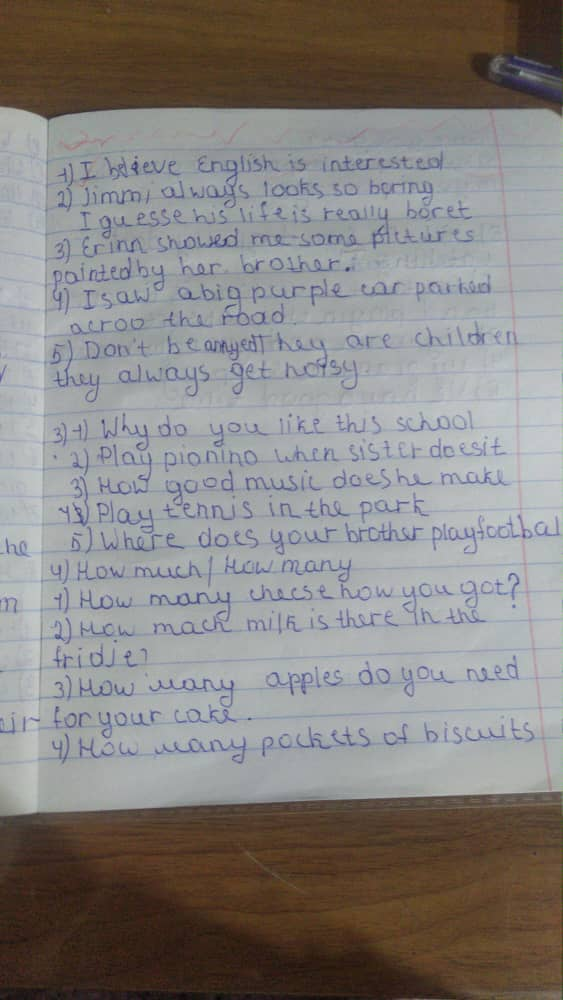 1) I believe English is interested
2) Jimmi always looks so boring
I guesse his life is really boret
3) Erinn showed me some pictures
painted by her brother.
4) I saw a big purple car parked
acroo the road.
5) Don't be annyed They are children
they always get noisy
3) 1) Why do you like this school
2) Play pionino when sister doesit
3) How good music does he make
4) Play tennis in the park
he 5) Where does your brother playfootbal
4) How much / How many
m 1) How many checse how you got?
2) How mach milk is there in the
fridje?
3) How many apples do you need
air for your cake.
4) How many pockets of biscuits